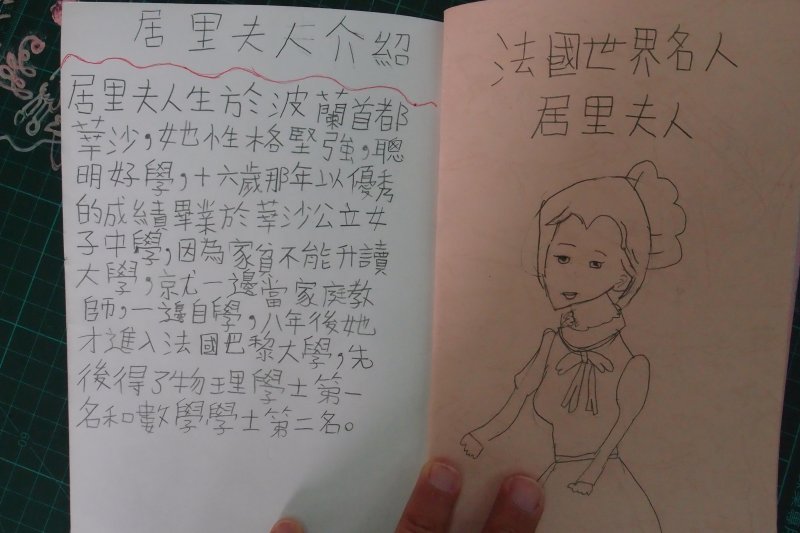 居里夫人介紹
居里夫人生於波蘭首都
華沙，她性格堅強，聰
明好學，十六歲那年以優秀
的成績畢業於華沙公立女
子中學，因為家貧不能升讀
大學，就一邊當家庭教
師，一邊自學，八年後她
才進入法國巴黎大學，先
後得了物理學士第一
名和數學學士第二名。
法國世界名人
居里夫人